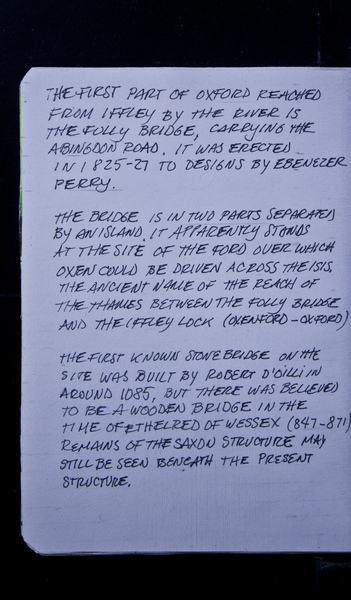 THE FIRST PART OF OXFORD REACHED
FROM IFFLEY BY THE RIVER IS
THE FOLLY BRIDGE, CARRYING THE
ABINGDON ROAD. IT WAS ERECTED
IN 1825-27 TO DESIGNS BY EBENEZER
PERRY.
THE BRIDGE IS IN TWO PARTS SEPARATED
BY AN ISLAND. IT APPARENTLY STANDS
AT THE SITE OF THE FORD OVER WHICH
OXEN COULD BE DRIVEN ACROSS THE ISIS,
THE ANCIENT NAME OF THE REACH OF
THE THAMES BETWEEN THE FOLLY BRIDGE
AND THE IFFLEY LOCK (OXENFORD-OXFORD)
THE FIRST KNOWN STONE BRIDGE ON THE
SITE WAS BUILT BY ROBERT D'OILLI IN
AROUND 1085, BUT THERE WAS BELIEVED
TO BE A WOODEN BRIDGE IN THE
TIME OF ETHELRED OF WESSEX (847-871)
REMAINS OF THE SAXON STRUCTURE MAY
STILL BE SEEN BENEATH THE PRESENT
STRUCTURE.